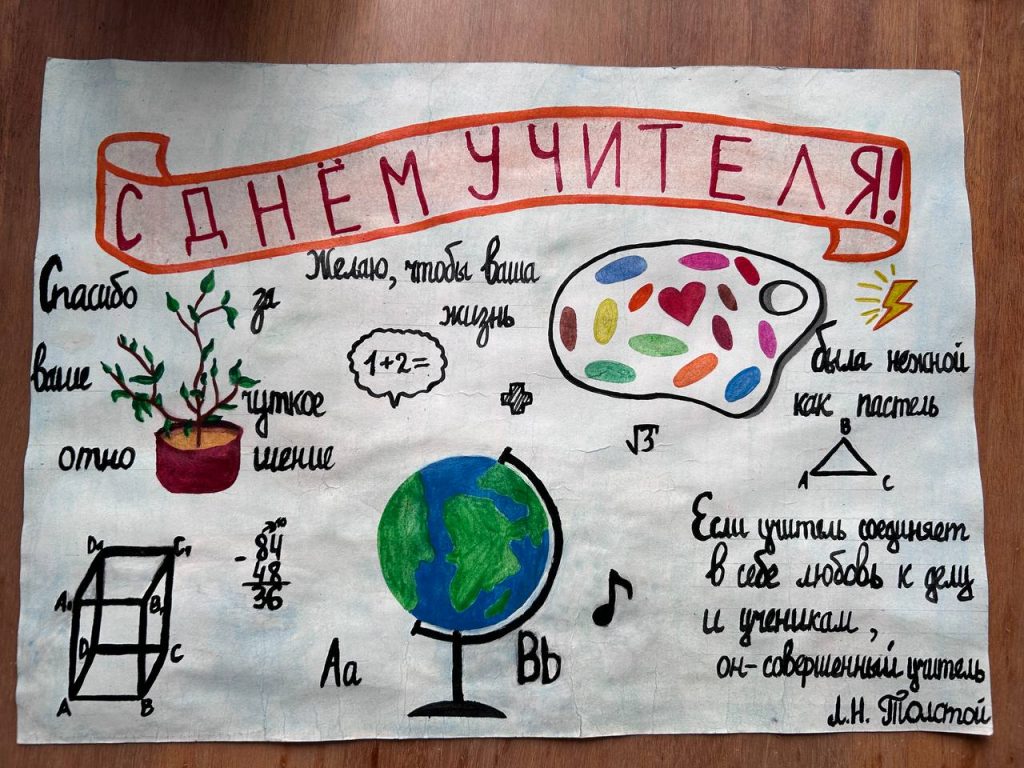 С ДНЁМ УЧИТЕЛЯ!
Спасибо за
ваше чуткое
отно шение
Желаю, чтобы ваша
жизнь
была нежной
как пастель
1+2=
√3
B
A C
D₁ C₁
A₁ B₁
D C
A B
10
- 84
48
36
Aa
Bb
Если учитель соединяет
в себе любовь к делу
и ученикам,
он-совершенный учитель
Л.Н. Толстой